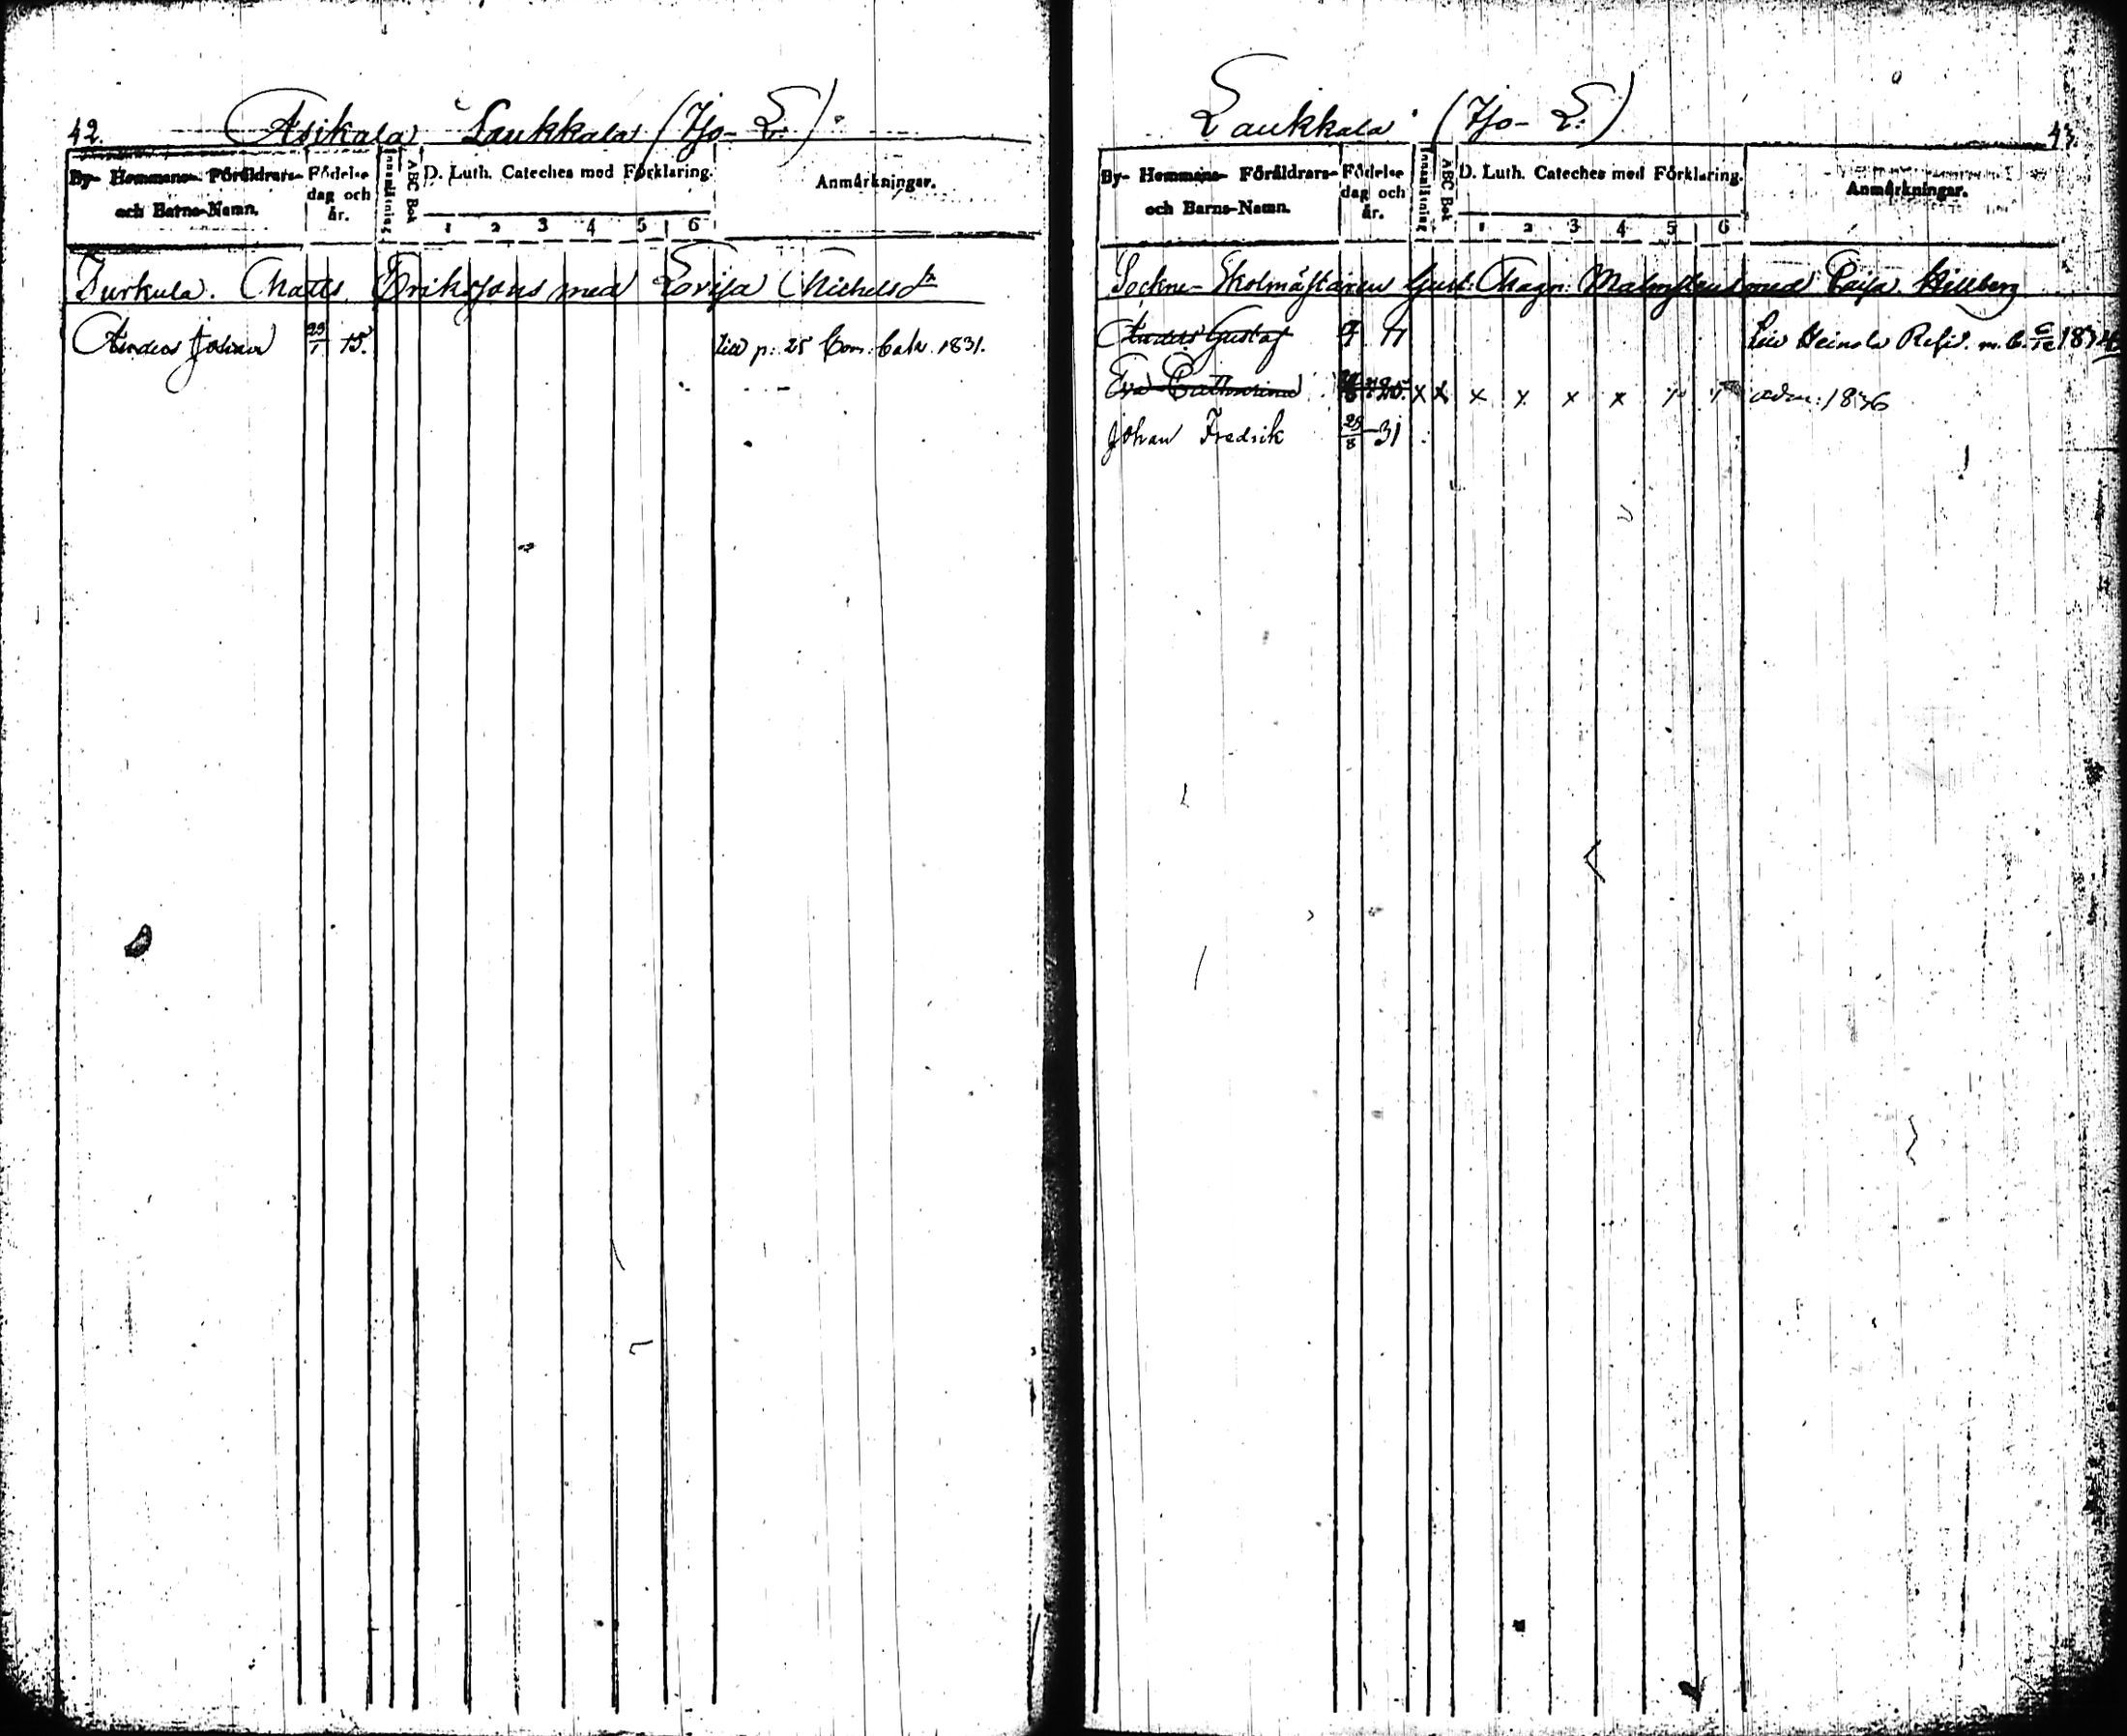 42.
Asikala Laukkala (Tjo- L.)
By- Hemmans- Föräldrars- och Barns-Namn.
Födelse dag och år.
Innanläsning
ABC Bok
D. Luth. Cateches med Förklaring.
1 2 3 4 5 6
Anmärkningar.
Matts Erikssons med Lovisa Michelsdr
Anders Johan 29/1 15. p: 25 Com: 1831.
43.
Laukkala (Tjo- L.)
By- Hemmans- Föräldrars- och Barns-Namn.
Födelse dag och år.
Innanläsning
ABC Bok
D. Luth. Cateches med Förklaring.
1 2 3 4 5 6
Anmärkningar.
Sockne-Skolmästaren Gust: Magn: med Caisa Hillberg
Anders Gustaf Heinola
Eva Catharina x x x x x x x x adm: 1836
Johan Fredrik 29/8 31